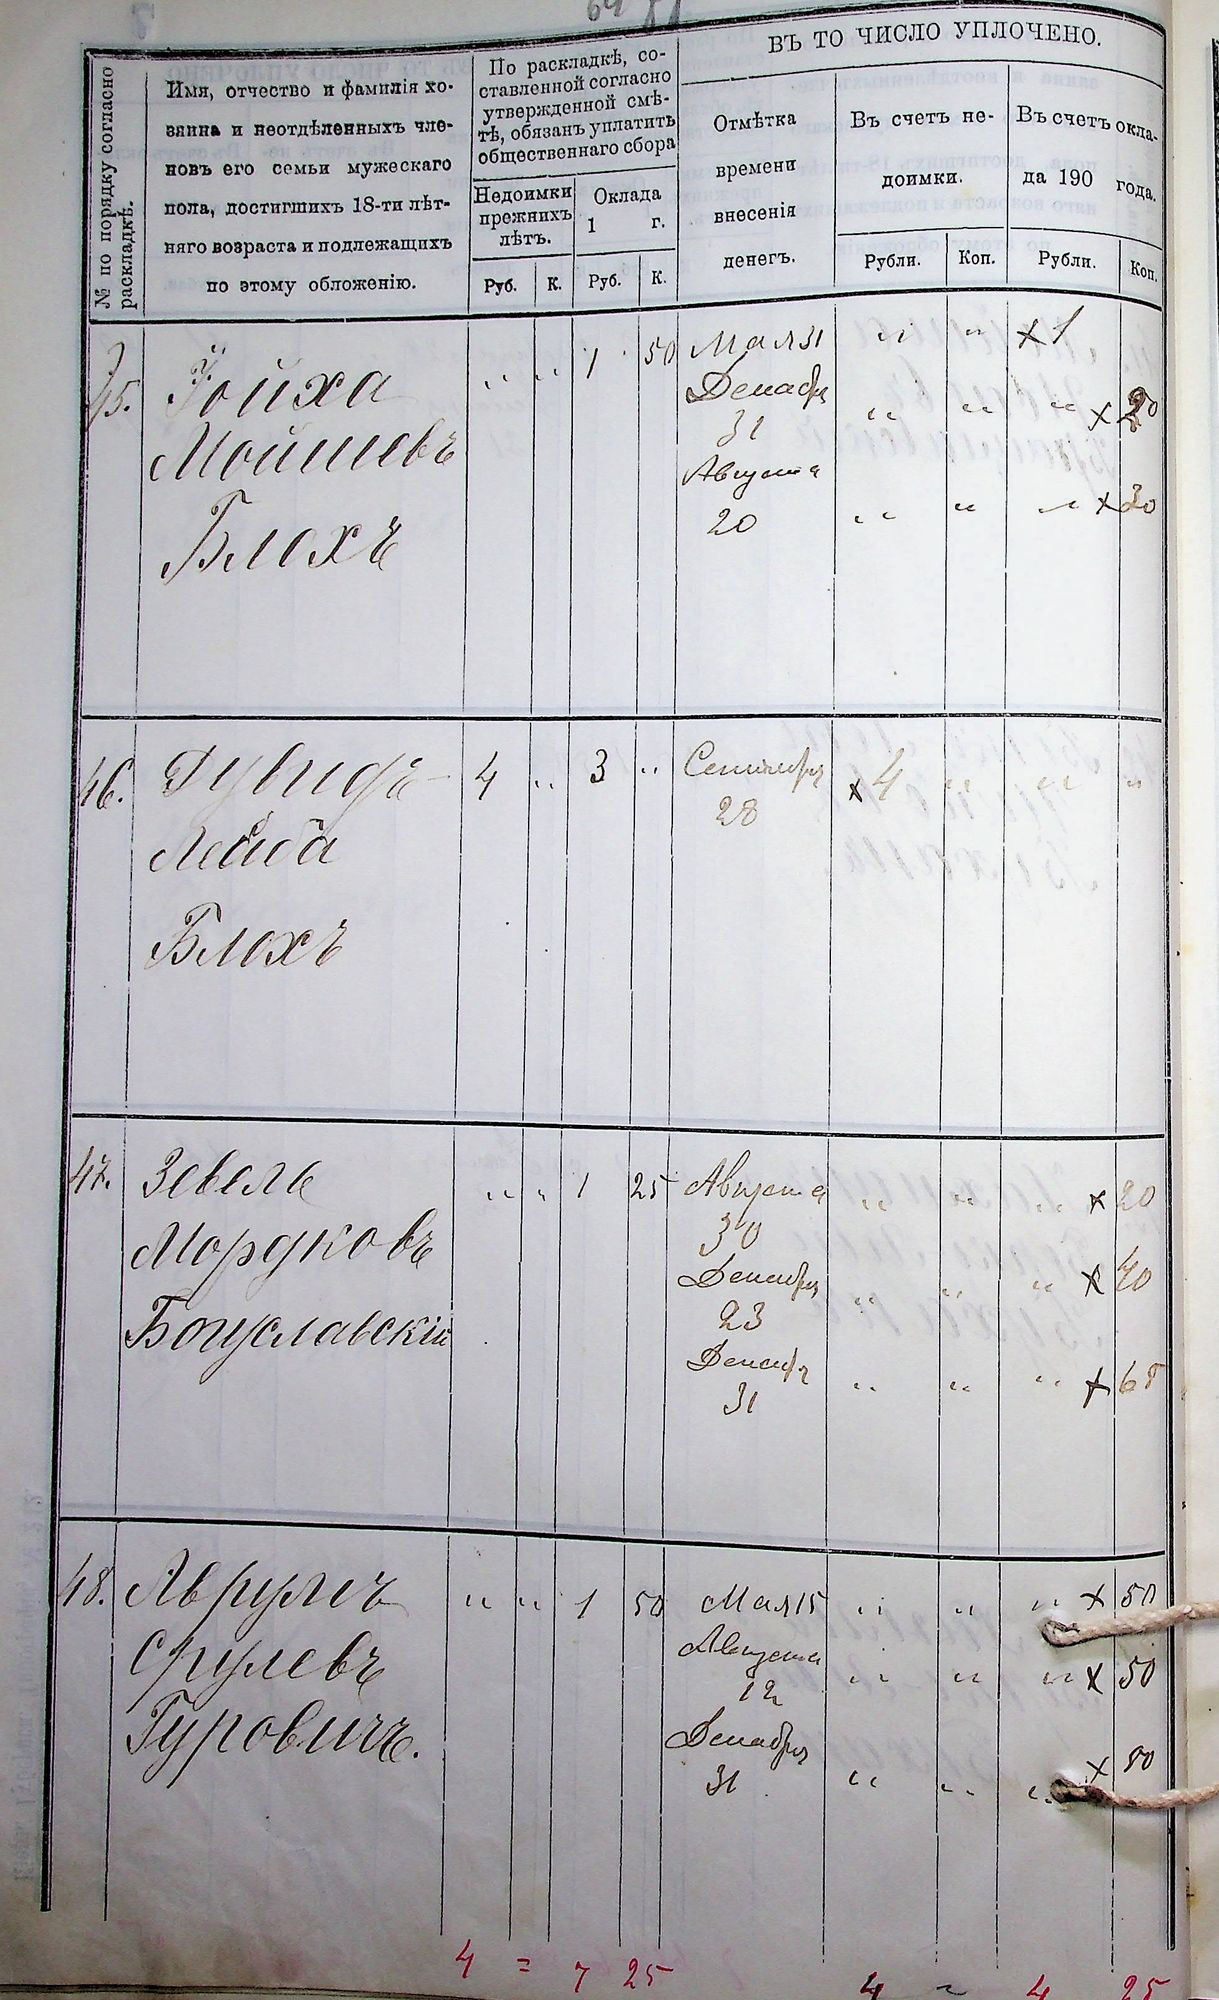 ВЪ ТО ЧИСЛО УПЛОЧЕНО.
№ по порядку согласно
раскладкѣ.
Имя, отчество и фамилія хо-
зяина и неотдѣленныхъ чле-
новъ его семьи мужескаго
пола, достигшихъ 18-ти лѣт-
няго возраста и подлежащихъ
по этому обложенію.
По раскладкѣ, со-
ставленной согласно
утвержденной смѣ-
тѣ, обязанъ уплатить
общественнаго сбора
Недоимки
прежнихъ
лѣтъ.
Оклада
1 г.
Руб. К. Руб. К.
Отмѣтка
времени
внесенія
денегъ.
Въ счетъ не-
доимки.
Въ счетъ окла-
да 190 года.
Рубли. Коп. Рубли. Коп.
45. Іойха " " 1 50 Мая 31 " " x 1
Мойшевъ Декабря
31 " " " x 20
Блохъ Августа
20 " " " x 30
46. Дувидъ- 4 " 3 " Сентября x 4 " " "
Лейба 28
Блохъ
47. Зевель " " 1 25 Августа " " " x 20
Мордковъ 30
Богуславскій Декабря " " " x 40
23
Декабря
31 " " " x 65
48. Аврумъ " " 1 50 Мая 15 " " " x 50
Срулевъ Августа
12 " " " x 50
Гуровичъ. Декабря
31 " " " x
4 = 7 25 4 = 4 25